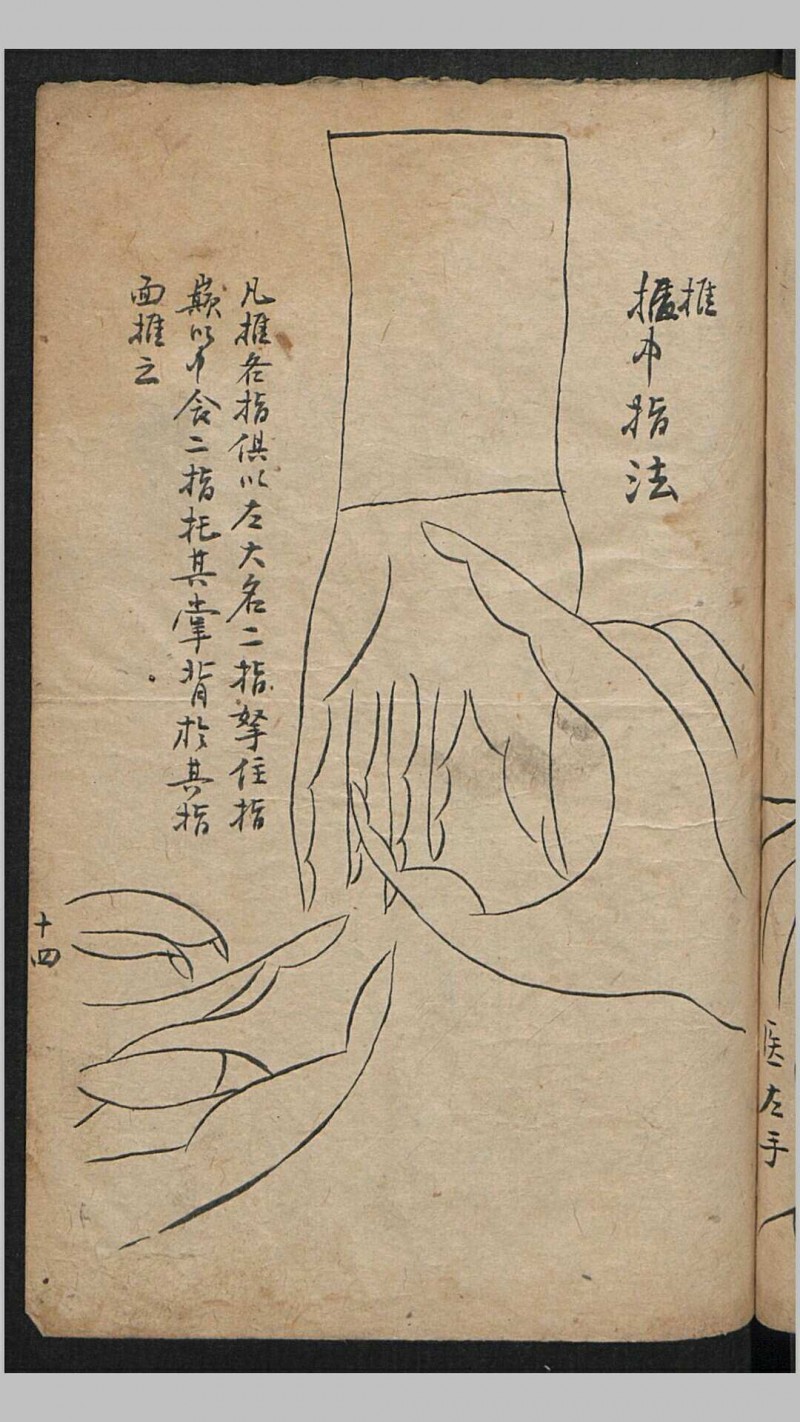 推
指法
凡推各指俱以左大名二指拏住指
巅以中食二指托其掌背於其指
面推之
十四
医左手